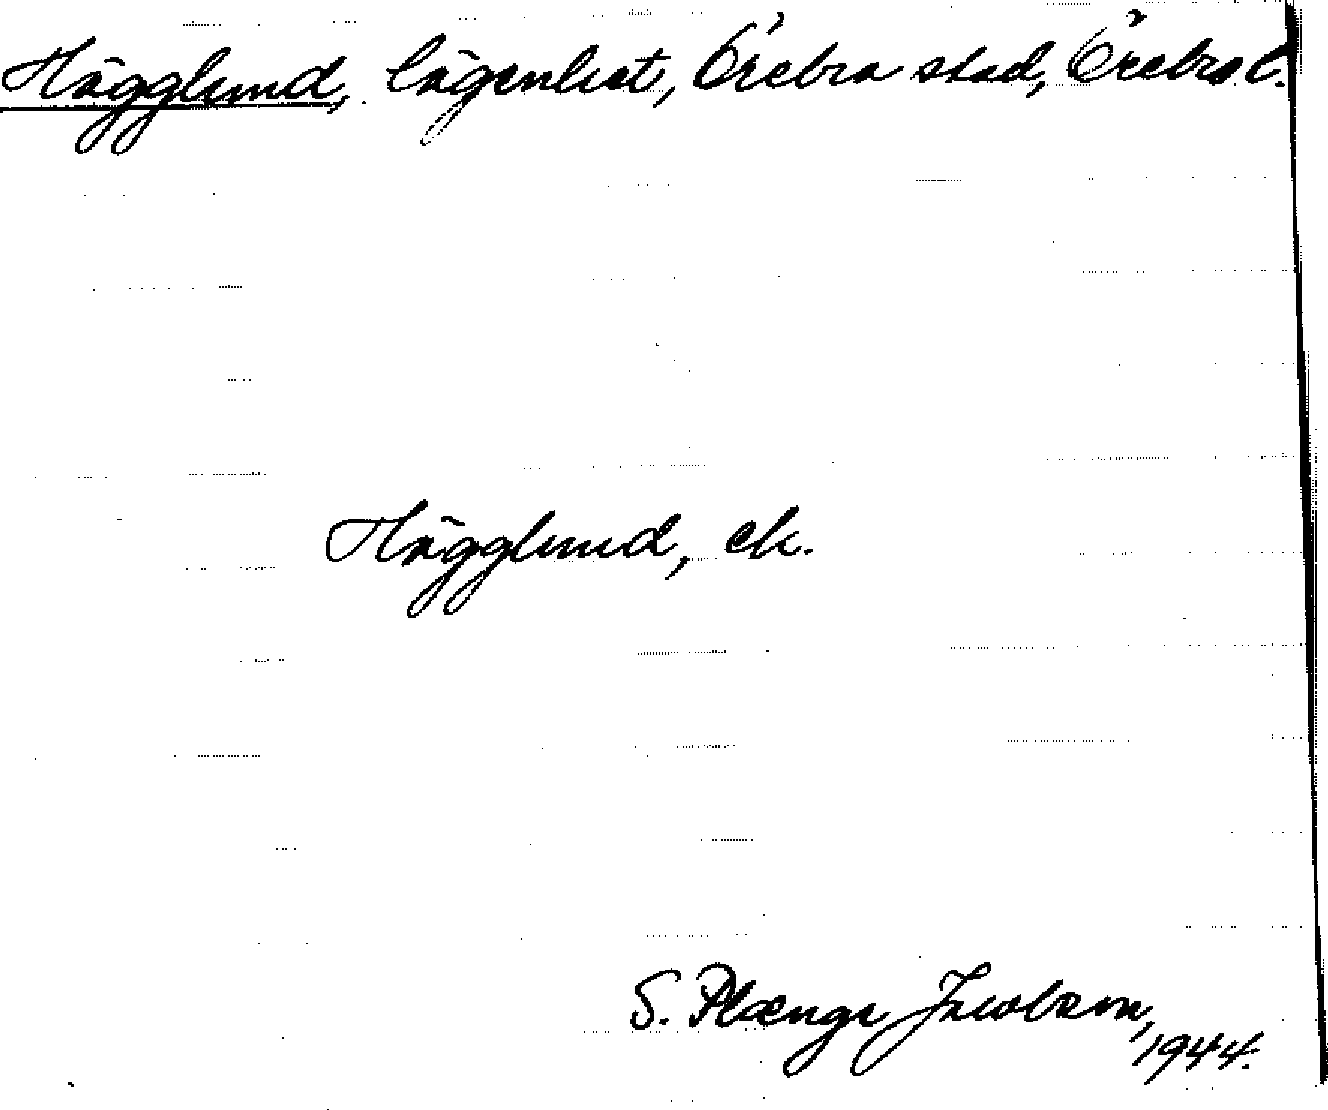 Hägglund, lägenhet, Örebro stad, Örebro l.
Hägglund, ek.
S. Plænge Jacobson,
1944.